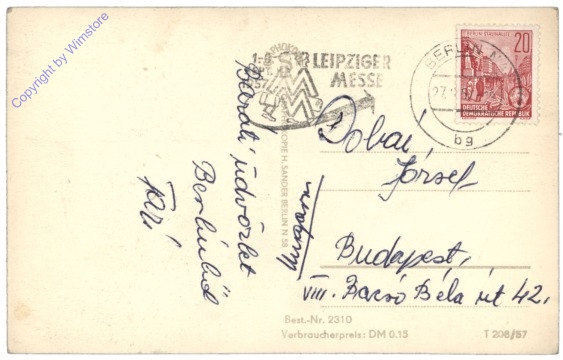 Copyright by Wimstore
LEIPZIGER
MESSE
BERLIN
bg
BERLIN STALINALLEE
20
DEUTSCHE
DEMOKRATISCHE REPUBLIK
Baráti üdvözlet
Berlinből
H. SANDER BERLIN N 58
Dobai
József
Budapest,
VIII. Bacsó Béla út 42.
Best.-Nr. 2310
Verbraucherpreis: DM 0.15
T 208/57